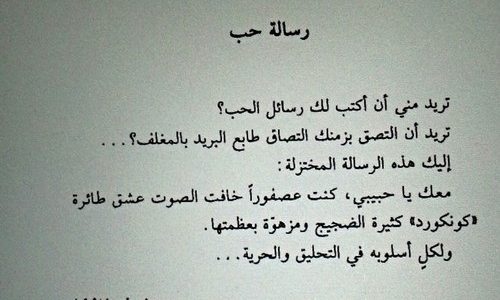 رسالة حب
تريد مني أن أكتب لك رسائل الحب؟
تريد أن التصق بزمنك التصاق طابع البريد بالمغلف؟...
إليك هذه الرسالة المختزلة:
معك يا حبيبي، كنت عصفوراً خافت الصوت عشق طائرة
«كونكورد» كثيرة الضجيج ومزهوّة بعظمتها.
ولكلٍ أسلوبه في التحليق والحرية...